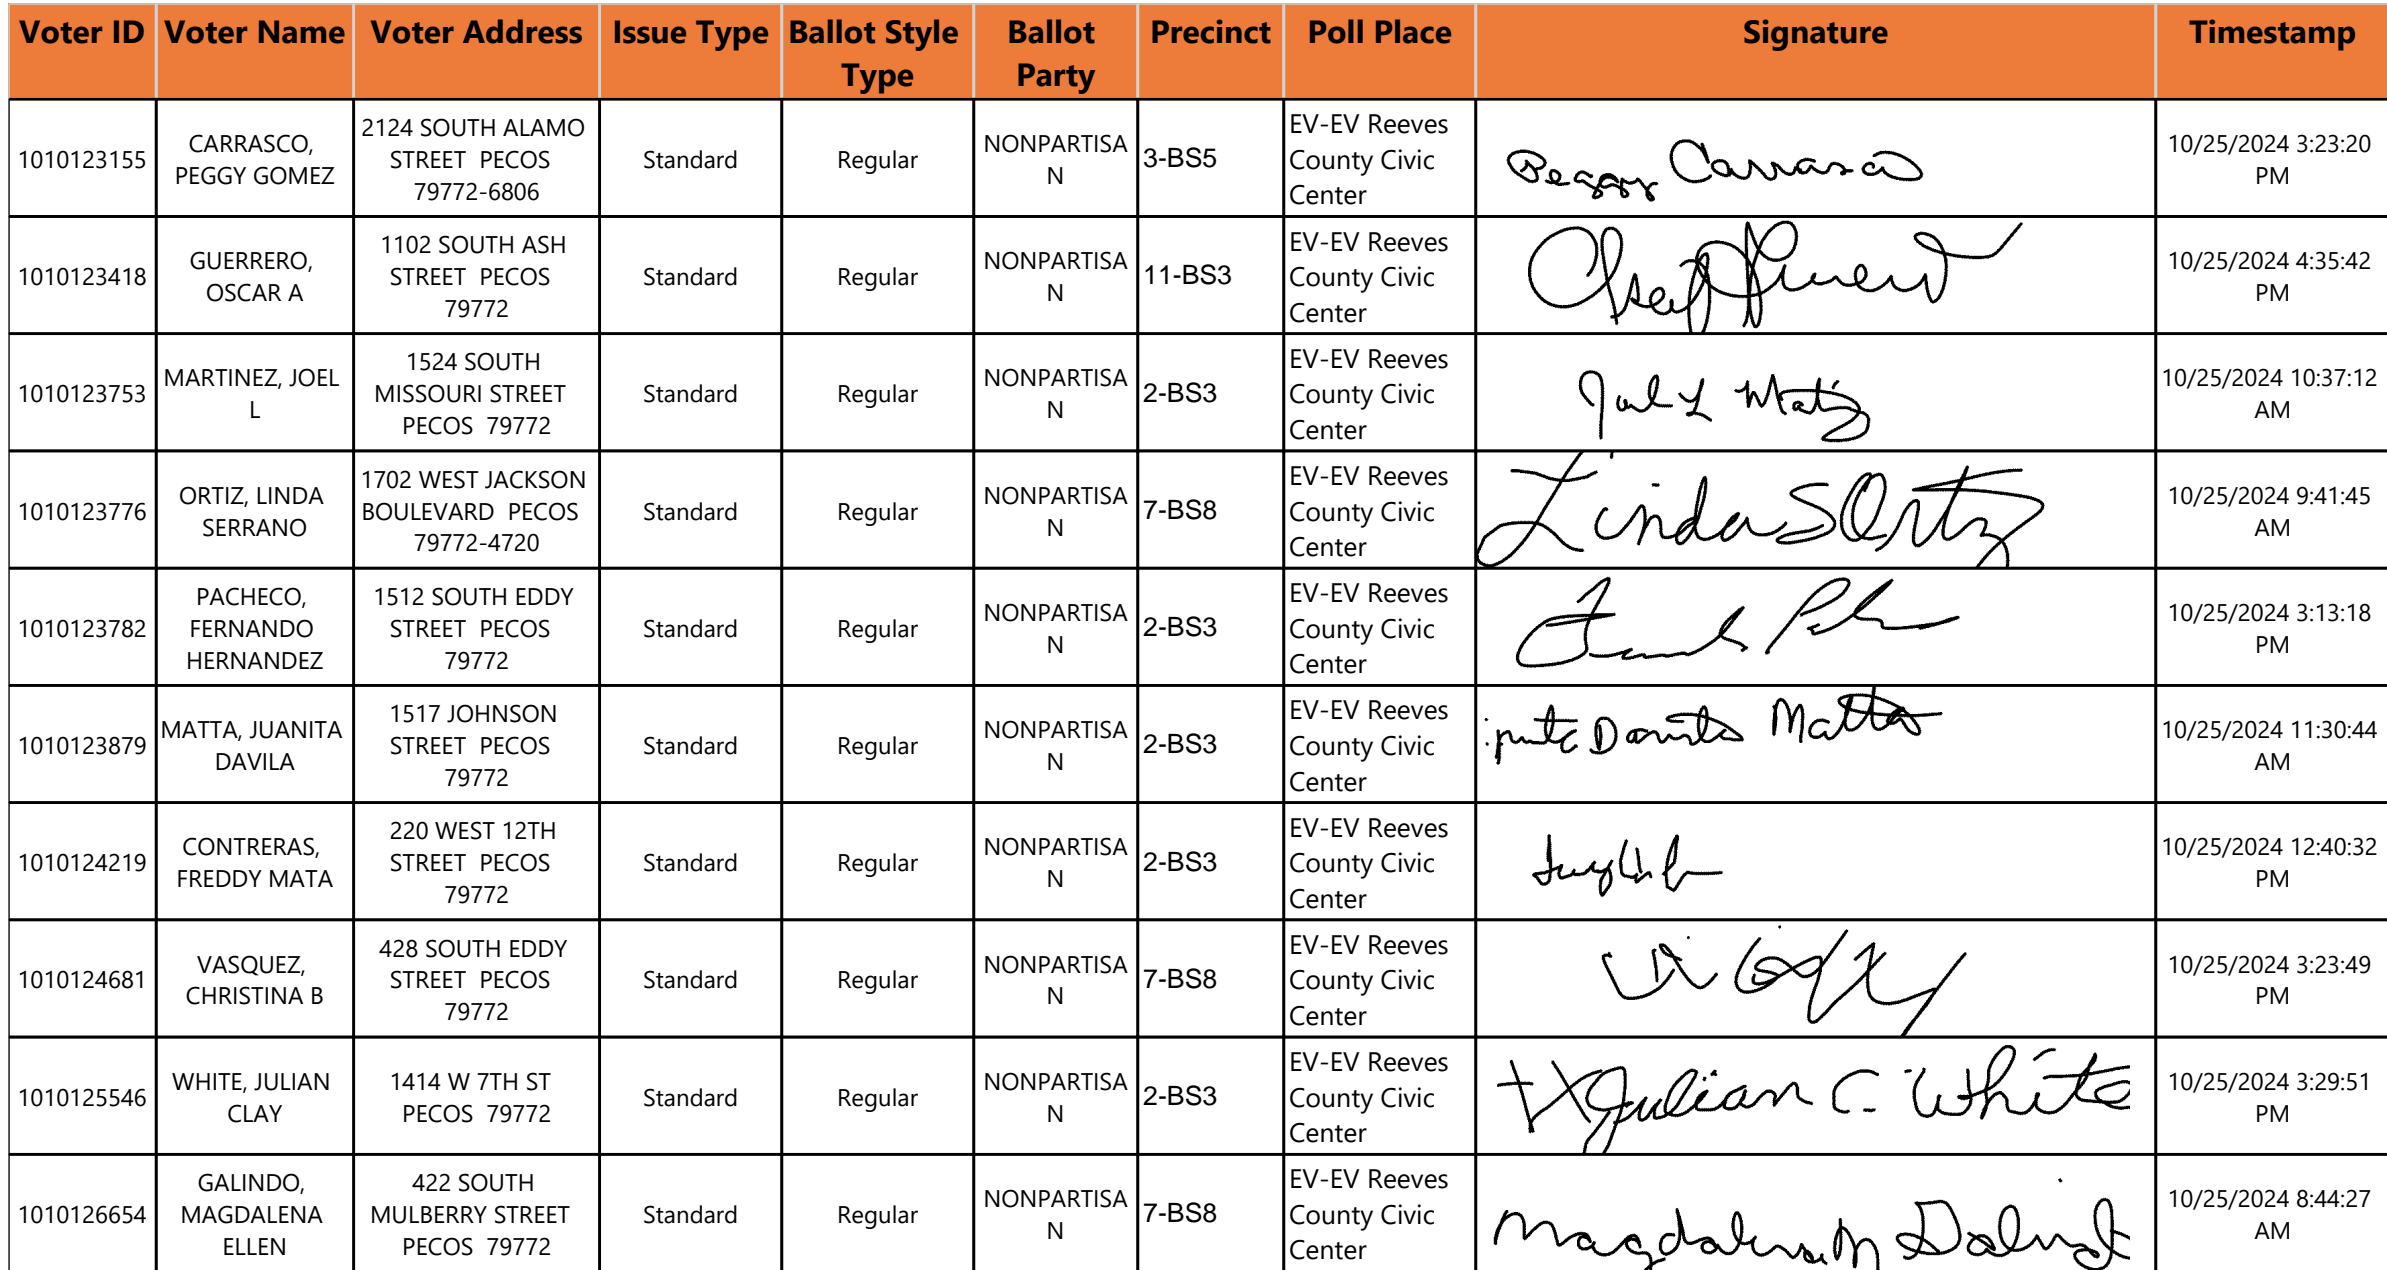 Voter ID Voter Name Voter Address Issue Type Ballot Style Type Ballot Party Precinct Poll Place Signature Timestamp
1010123155 CARRASCO, PEGGY GOMEZ 2124 SOUTH ALAMO STREET PECOS 79772-6806 Standard Regular NONPARTISAN 3-BS5 EV-EV Reeves County Civic Center Peggy Carrasco 10/25/2024 3:23:20 PM
1010123418 GUERRERO, OSCAR A 1102 SOUTH ASH STREET PECOS 79772 Standard Regular NONPARTISAN 11-BS3 EV-EV Reeves County Civic Center 10/25/2024 4:35:42 PM
1010123753 MARTINEZ, JOEL L 1524 SOUTH MISSOURI STREET PECOS 79772 Standard Regular NONPARTISAN 2-BS3 EV-EV Reeves County Civic Center Joel L Matz 10/25/2024 10:37:12 AM
1010123776 ORTIZ, LINDA SERRANO 1702 WEST JACKSON BOULEVARD PECOS 79772-4720 Standard Regular NONPARTISAN 7-BS8 EV-EV Reeves County Civic Center Linda S Ortiz 10/25/2024 9:41:45 AM
1010123782 PACHECO, FERNANDO HERNANDEZ 1512 SOUTH EDDY STREET PECOS 79772 Standard Regular NONPARTISAN 2-BS3 EV-EV Reeves County Civic Center 10/25/2024 3:13:18 PM
1010123879 MATTA, JUANITA DAVILA 1517 JOHNSON STREET PECOS 79772 Standard Regular NONPARTISAN 2-BS3 EV-EV Reeves County Civic Center Matta 10/25/2024 11:30:44 AM
1010124219 CONTRERAS, FREDDY MATA 220 WEST 12TH STREET PECOS 79772 Standard Regular NONPARTISAN 2-BS3 EV-EV Reeves County Civic Center 10/25/2024 12:40:32 PM
1010124681 VASQUEZ, CHRISTINA B 428 SOUTH EDDY STREET PECOS 79772 Standard Regular NONPARTISAN 7-BS8 EV-EV Reeves County Civic Center 10/25/2024 3:23:49 PM
1010125546 WHITE, JULIAN CLAY 1414 W 7TH ST PECOS 79772 Standard Regular NONPARTISAN 2-BS3 EV-EV Reeves County Civic Center X Julian C. White 10/25/2024 3:29:51 PM
1010126654 GALINDO, MAGDALENA ELLEN 422 SOUTH MULBERRY STREET PECOS 79772 Standard Regular NONPARTISAN 7-BS8 EV-EV Reeves County Civic Center Magdalena 10/25/2024 8:44:27 AM